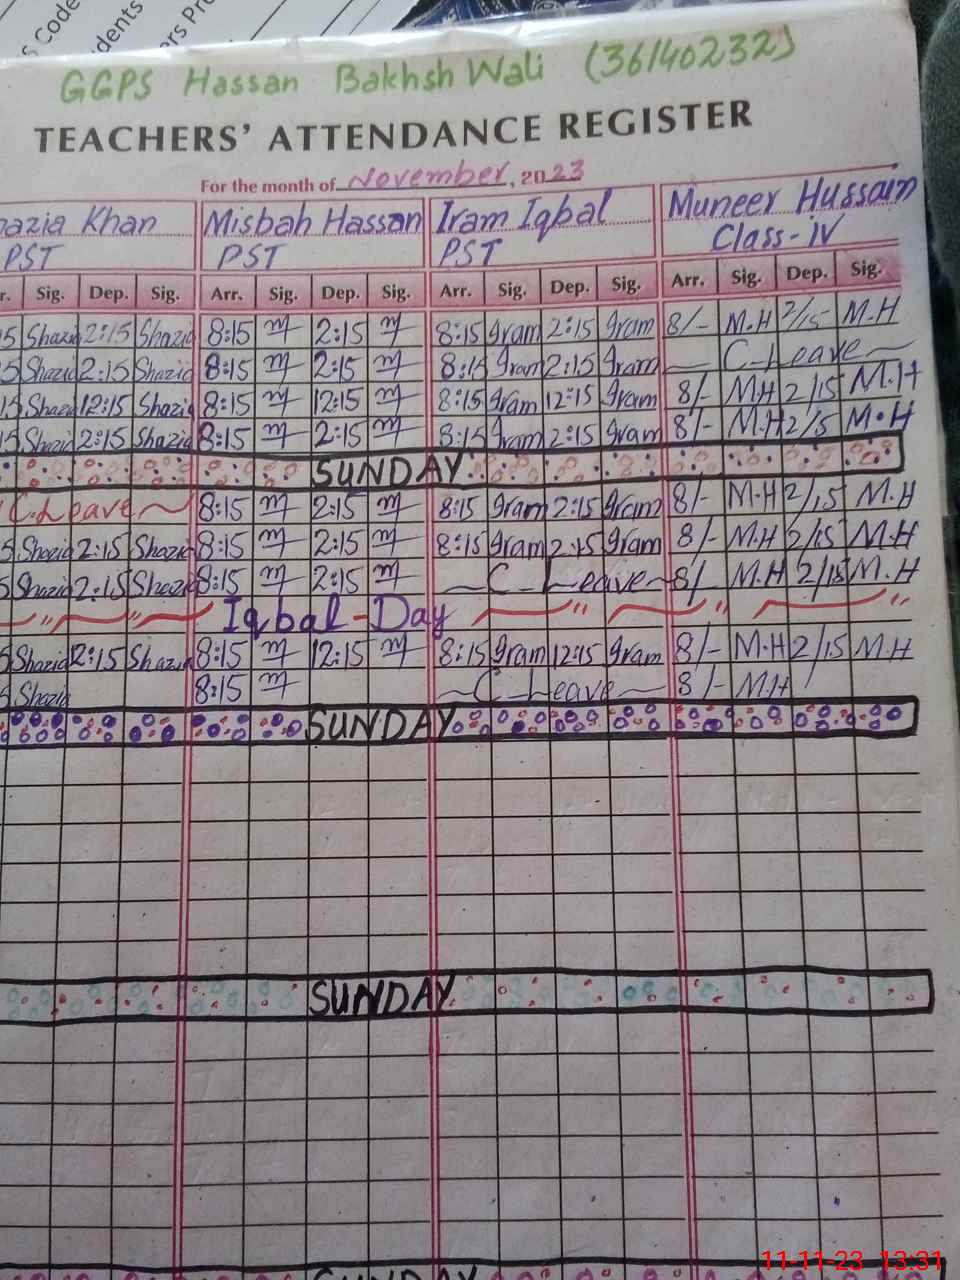 s Code
dents
ers Pr
GGPS Hassan Bakhsh Wali (36140232)
TEACHERS' ATTENDANCE REGISTER
For the month of November, 2023
hazia Khan Misbah Hassan Iram Iqbal Muneer Hussain
PST PST PST Class-IV
r. Sig. Dep. Sig. Arr. Sig. Dep. Sig. Arr. Sig. Dep. Sig. Arr. Sig. Dep. Sig.
15 Shazia 2:15 Shazia 8:15 m 2:15 m 8:15 Iram 2:15 Iram 8/- M.H 2/15 M.H
5 Shazia 2:15 Shazia 8:15 m 2:15 m 8:15 Iram 2:15 Iram C-Leave
15 Shazia 12:15 Shazia 8:15 m 12:15 m 8:15 Iram 12:15 Iram 8/- M.H 2/15 M.H
5 Shazia 2:15 Shazia 8:15 m 2:15 m 8:15 Iram 2:15 Iram 8/- M.H 2/5 M.H
SUNDAY
C.Leave 8:15 m 2:15 m 8:15 Iram 2:15 Iram 8/- M.H 2/15 M.H
5 Shazia 2:15 Shazia 8:15 m 2:15 m 8:15 Iram 2:15 Iram 8/- M.H 2/15 M.H
5 Shazia 2:15 Shazia 8:15 m 2:15 m C-Leave 8/- M.H 2/15 M.H
Iqbal-Day
5 Shazia 12:15 Shazia 8:15 m 12:15 m 8:15 Iram 12:15 Iram 8/- M.H 2/15 M.H
5 Shazia 8:15 m C-Leave 8/- M.H
SUNDAY
SUNDAY
SUNDAY
11-11-23 13:31